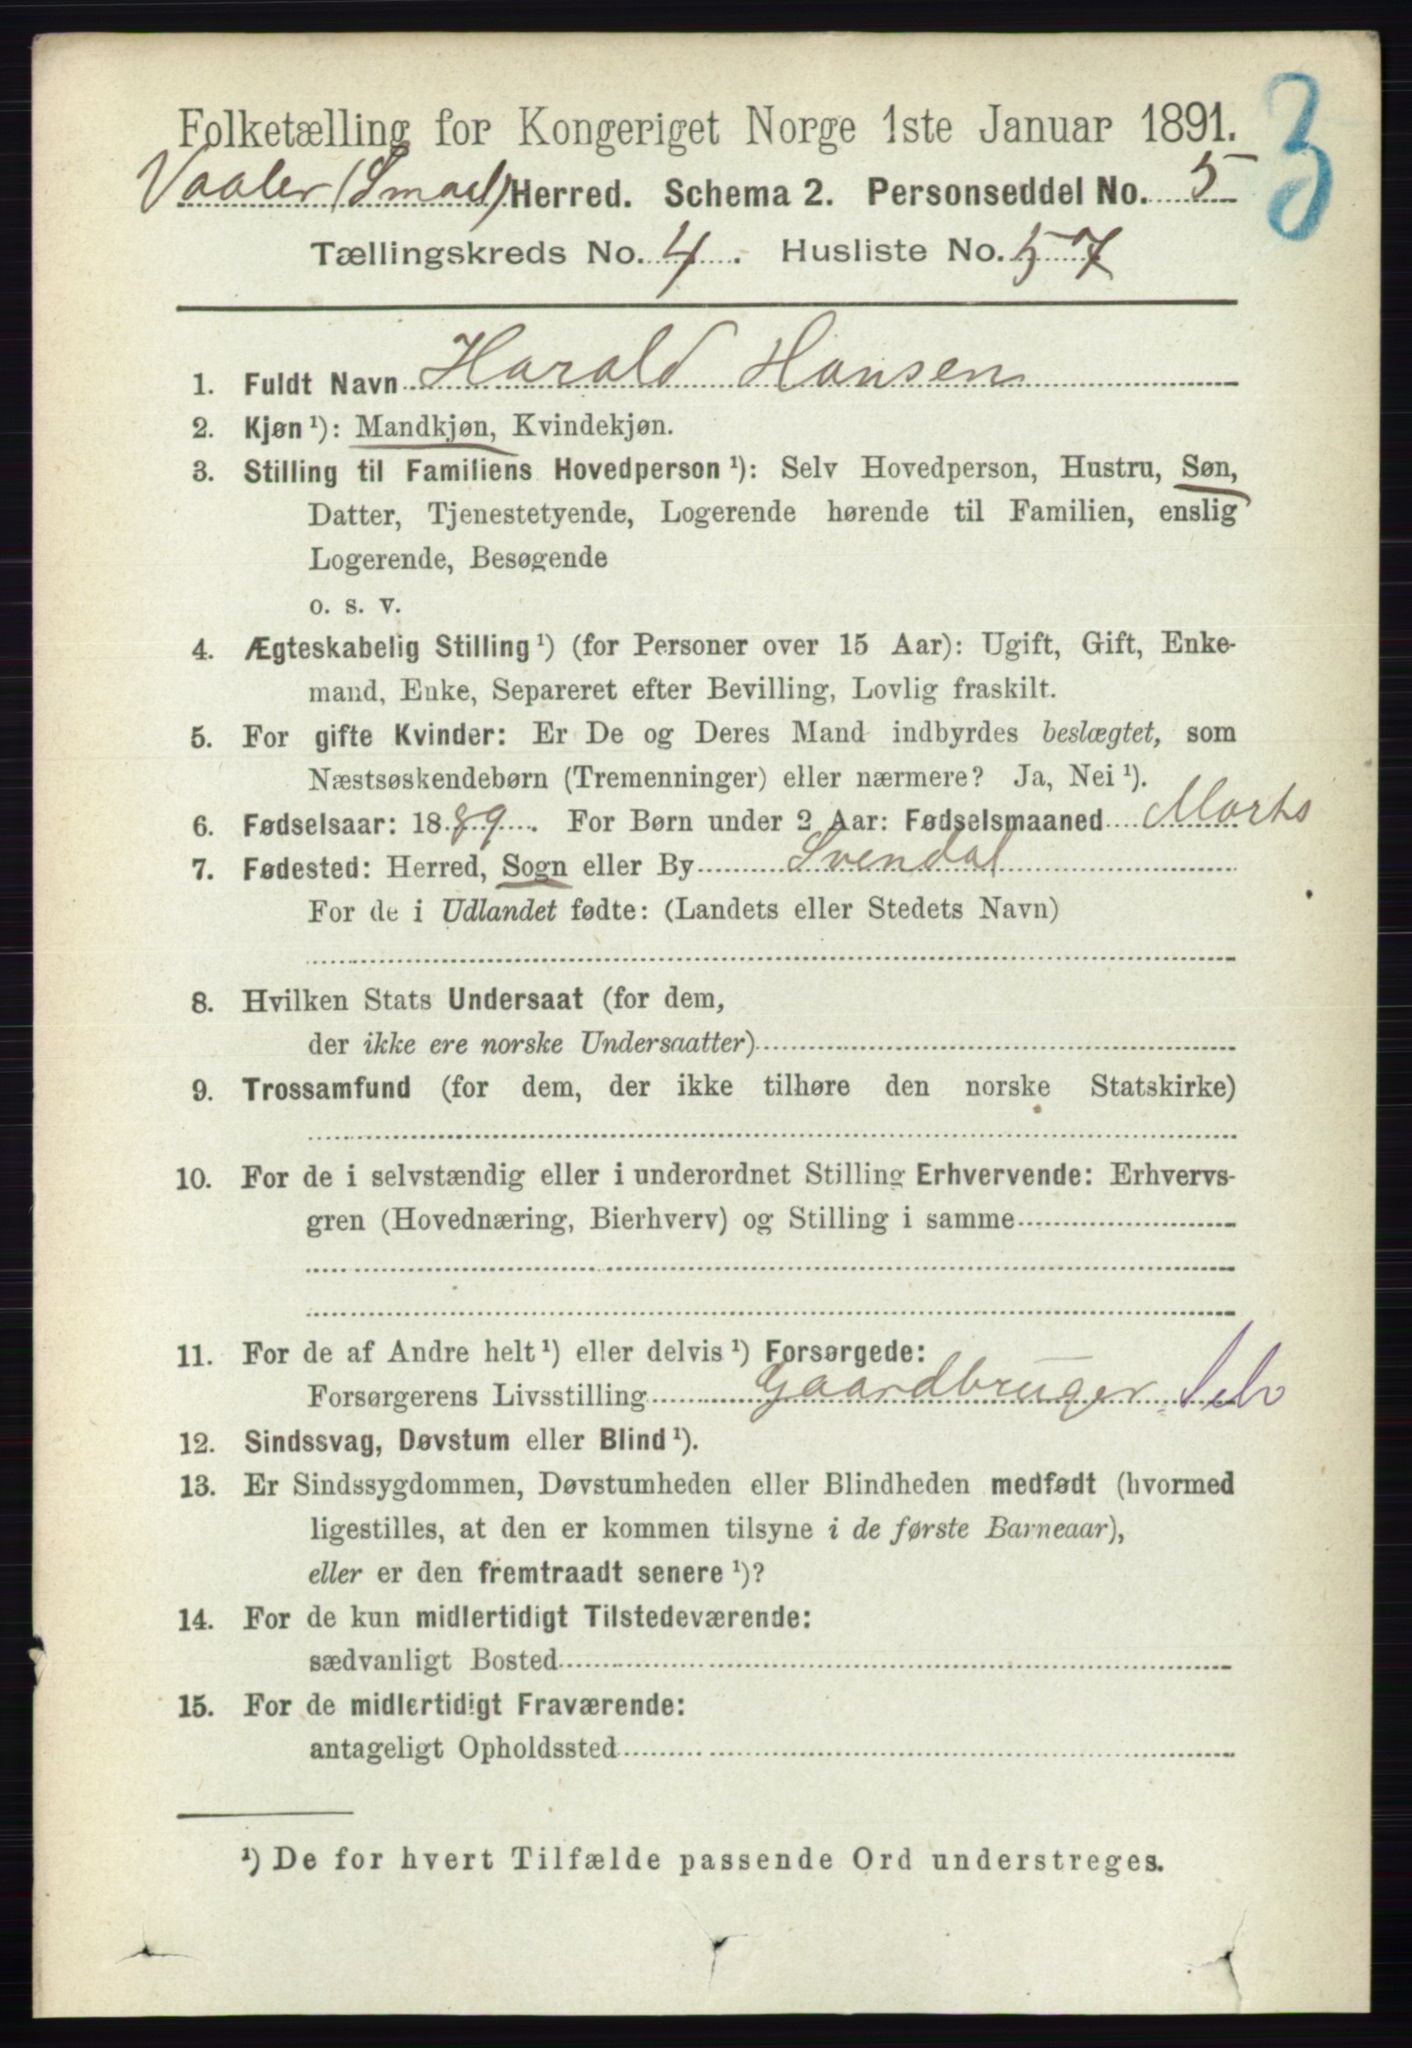 Folketælling for Kongeriget Norge 1ste Januar 1891.
3
Vaaler (Smaal) Herred. Schema 2. Personseddel No. 5
Tællingskreds No. 4. Husliste No. 57
1. Fuldt Navn Harald Hansen
2. Kjøn ¹): Mandkjøn, Kvindekjøn.
3. Stilling til Familiens Hovedperson ¹): Selv Hovedperson, Hustru, Søn,
Datter, Tjenestetyende, Logerende hørende til Familien, enslig
Logerende, Besøgende
o. s. v.
4. Ægteskabelig Stilling ¹) (for Personer over 15 Aar): Ugift, Gift, Enke-
mand, Enke, Separeret efter Bevilling, Lovlig fraskilt.
5. For gifte Kvinder: Er De og Deres Mand indbyrdes beslægtet, som
Næstsøskendebørn (Tremenninger) eller nærmere? Ja, Nei ¹).
6. Fødselsaar: 1889. For Børn under 2 Aar: Fødselsmaaned Marts
7. Fødested: Herred, Sogn eller By Svendal
For de i Udlandet fødte: (Landets eller Stedets Navn)
8. Hvilken Stats Undersaat (for dem,
der ikke ere norske Undersaatter)
9. Trossamfund (for dem, der ikke tilhøre den norske Statskirke)
10. For de i selvstændig eller i underordnet Stilling Erhvervende: Erhvervs-
gren (Hovednæring, Bierhverv) og Stilling i samme
11. For de af Andre helt ¹) eller delvis ¹) Forsørgede:
Forsørgerens Livsstilling Gaardbruger Selv
12. Sindssvag, Døvstum eller Blind ¹).
13. Er Sindssygdommen, Døvstumheden eller Blindheden medfødt (hvormed
ligestilles, at den er kommen tilsyne i de første Barneaar),
eller er den fremtraadt senere ¹)?
14. For de kun midlertidigt Tilstedeværende:
sædvanligt Bosted
15. For de midlertidigt Fraværende:
antageligt Opholdssted
¹) De for hvert Tilfælde passende Ord understreges.